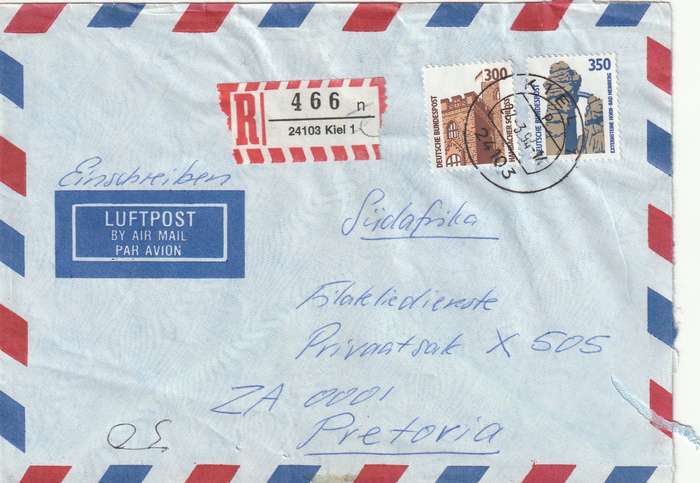 300
DEUTSCHE BUNDESPOST
HAMBACHER SCHLOSS
350
DEUTSCHE BUNDESPOST
EXTERNSTEINE HORN-BAD MEINBERG
R
466 n
24103 Kiel 1
KIEL
24103
Einschreiben
LUFTPOST
BY AIR MAIL
PAR AVION
Südafrika
Filateliedienste
Privaatsak X 505
ZA 0001
Pretoria